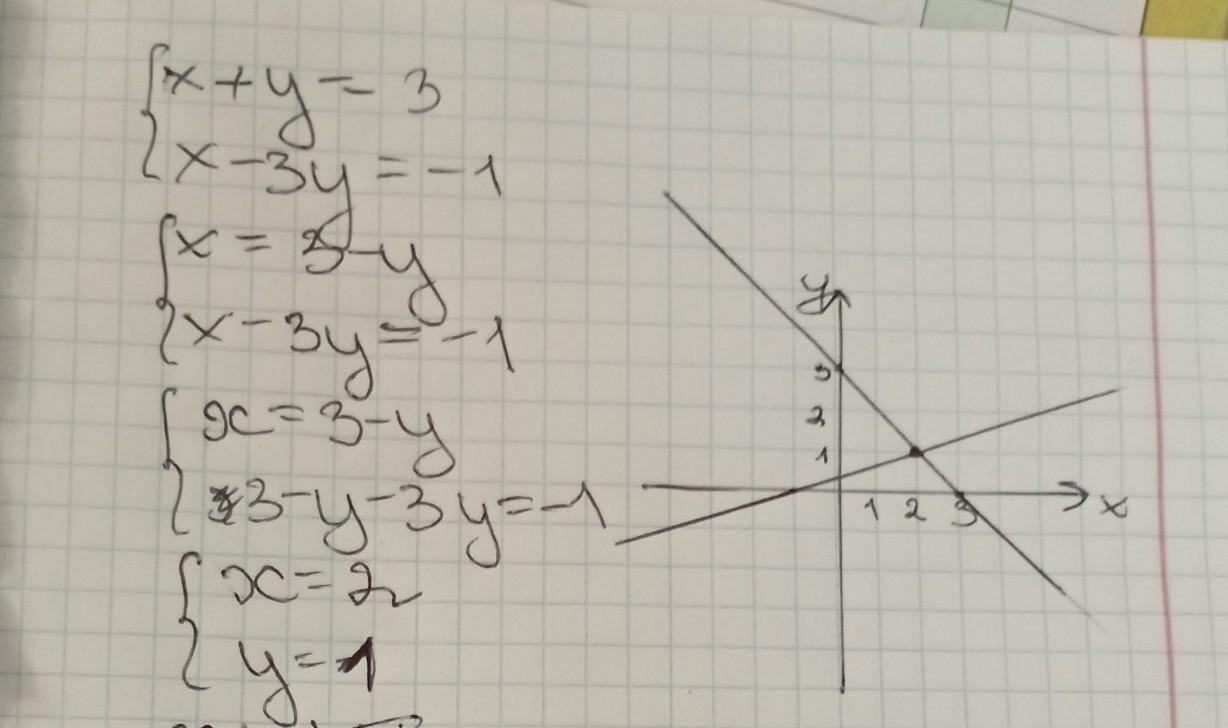 x+y=3
x-3y=-1
x=3-y
x-3y=-1
x=3-y
3-y-3y=-1
x=2
y=1
y
3
2
1
1 2 3 x